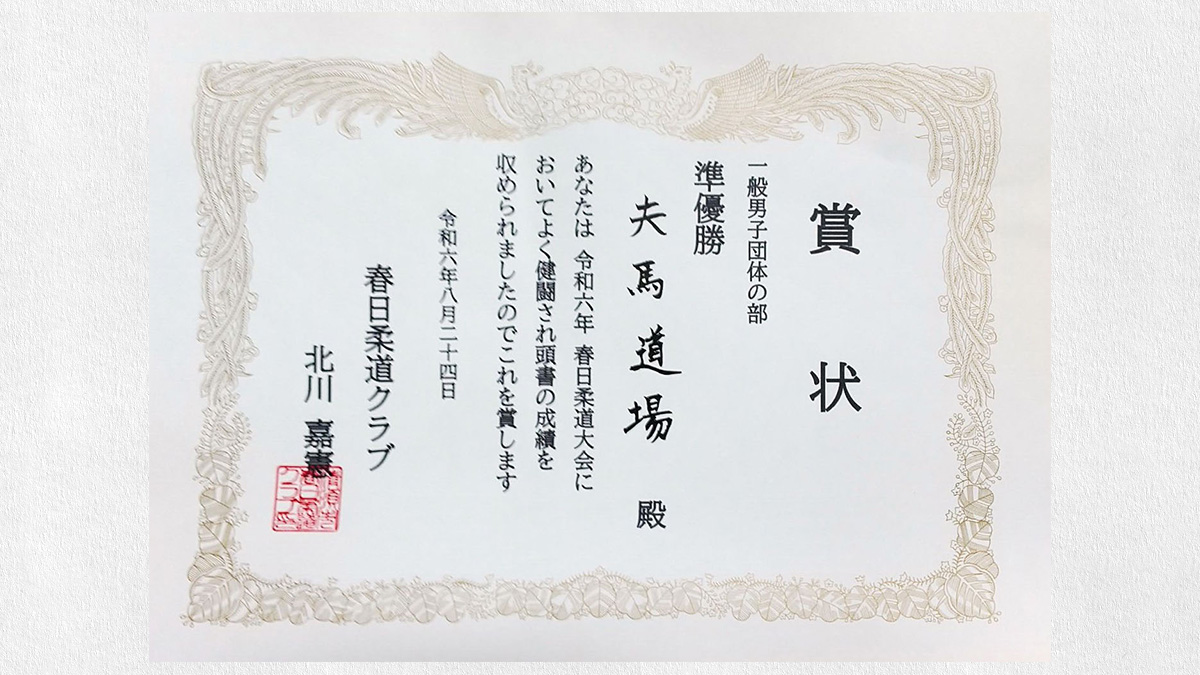 賞状
一般男子団体の部
準優勝
夫馬道場 殿
あなたは 令和六年 春日柔道大会に
おいてよく健闘され頭書の成績を
収められましたのでこれを賞します
令和六年八月二十四日
春日柔道クラブ
北川 嘉憲